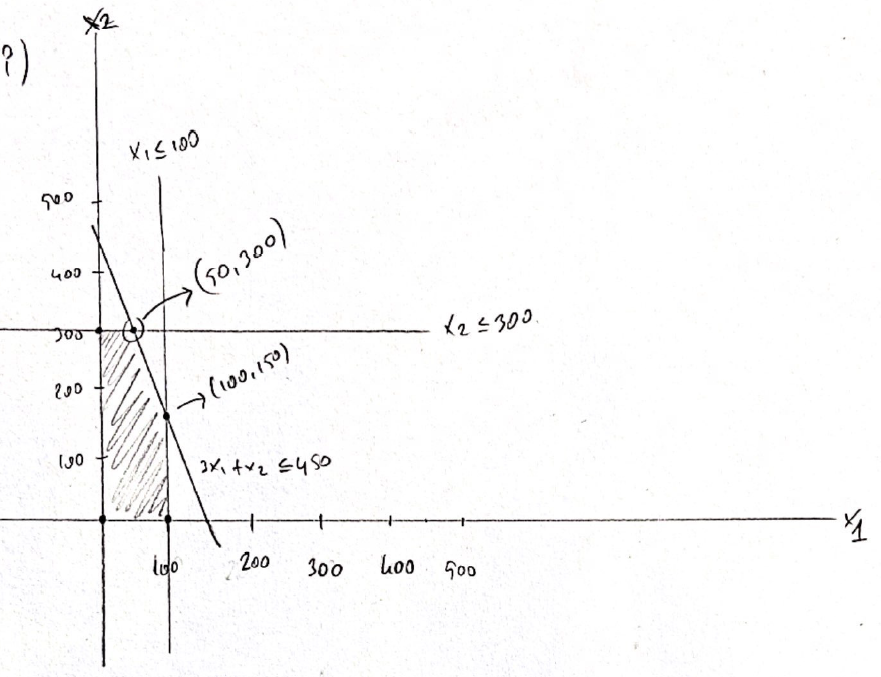 x2
?)
x1 ≤ 100
500
(50,300)
400
300
x2 ≤ 300.
200
(100,150)
100
3x1 + x2 ≤ 450
x1
100 200 300 400 500